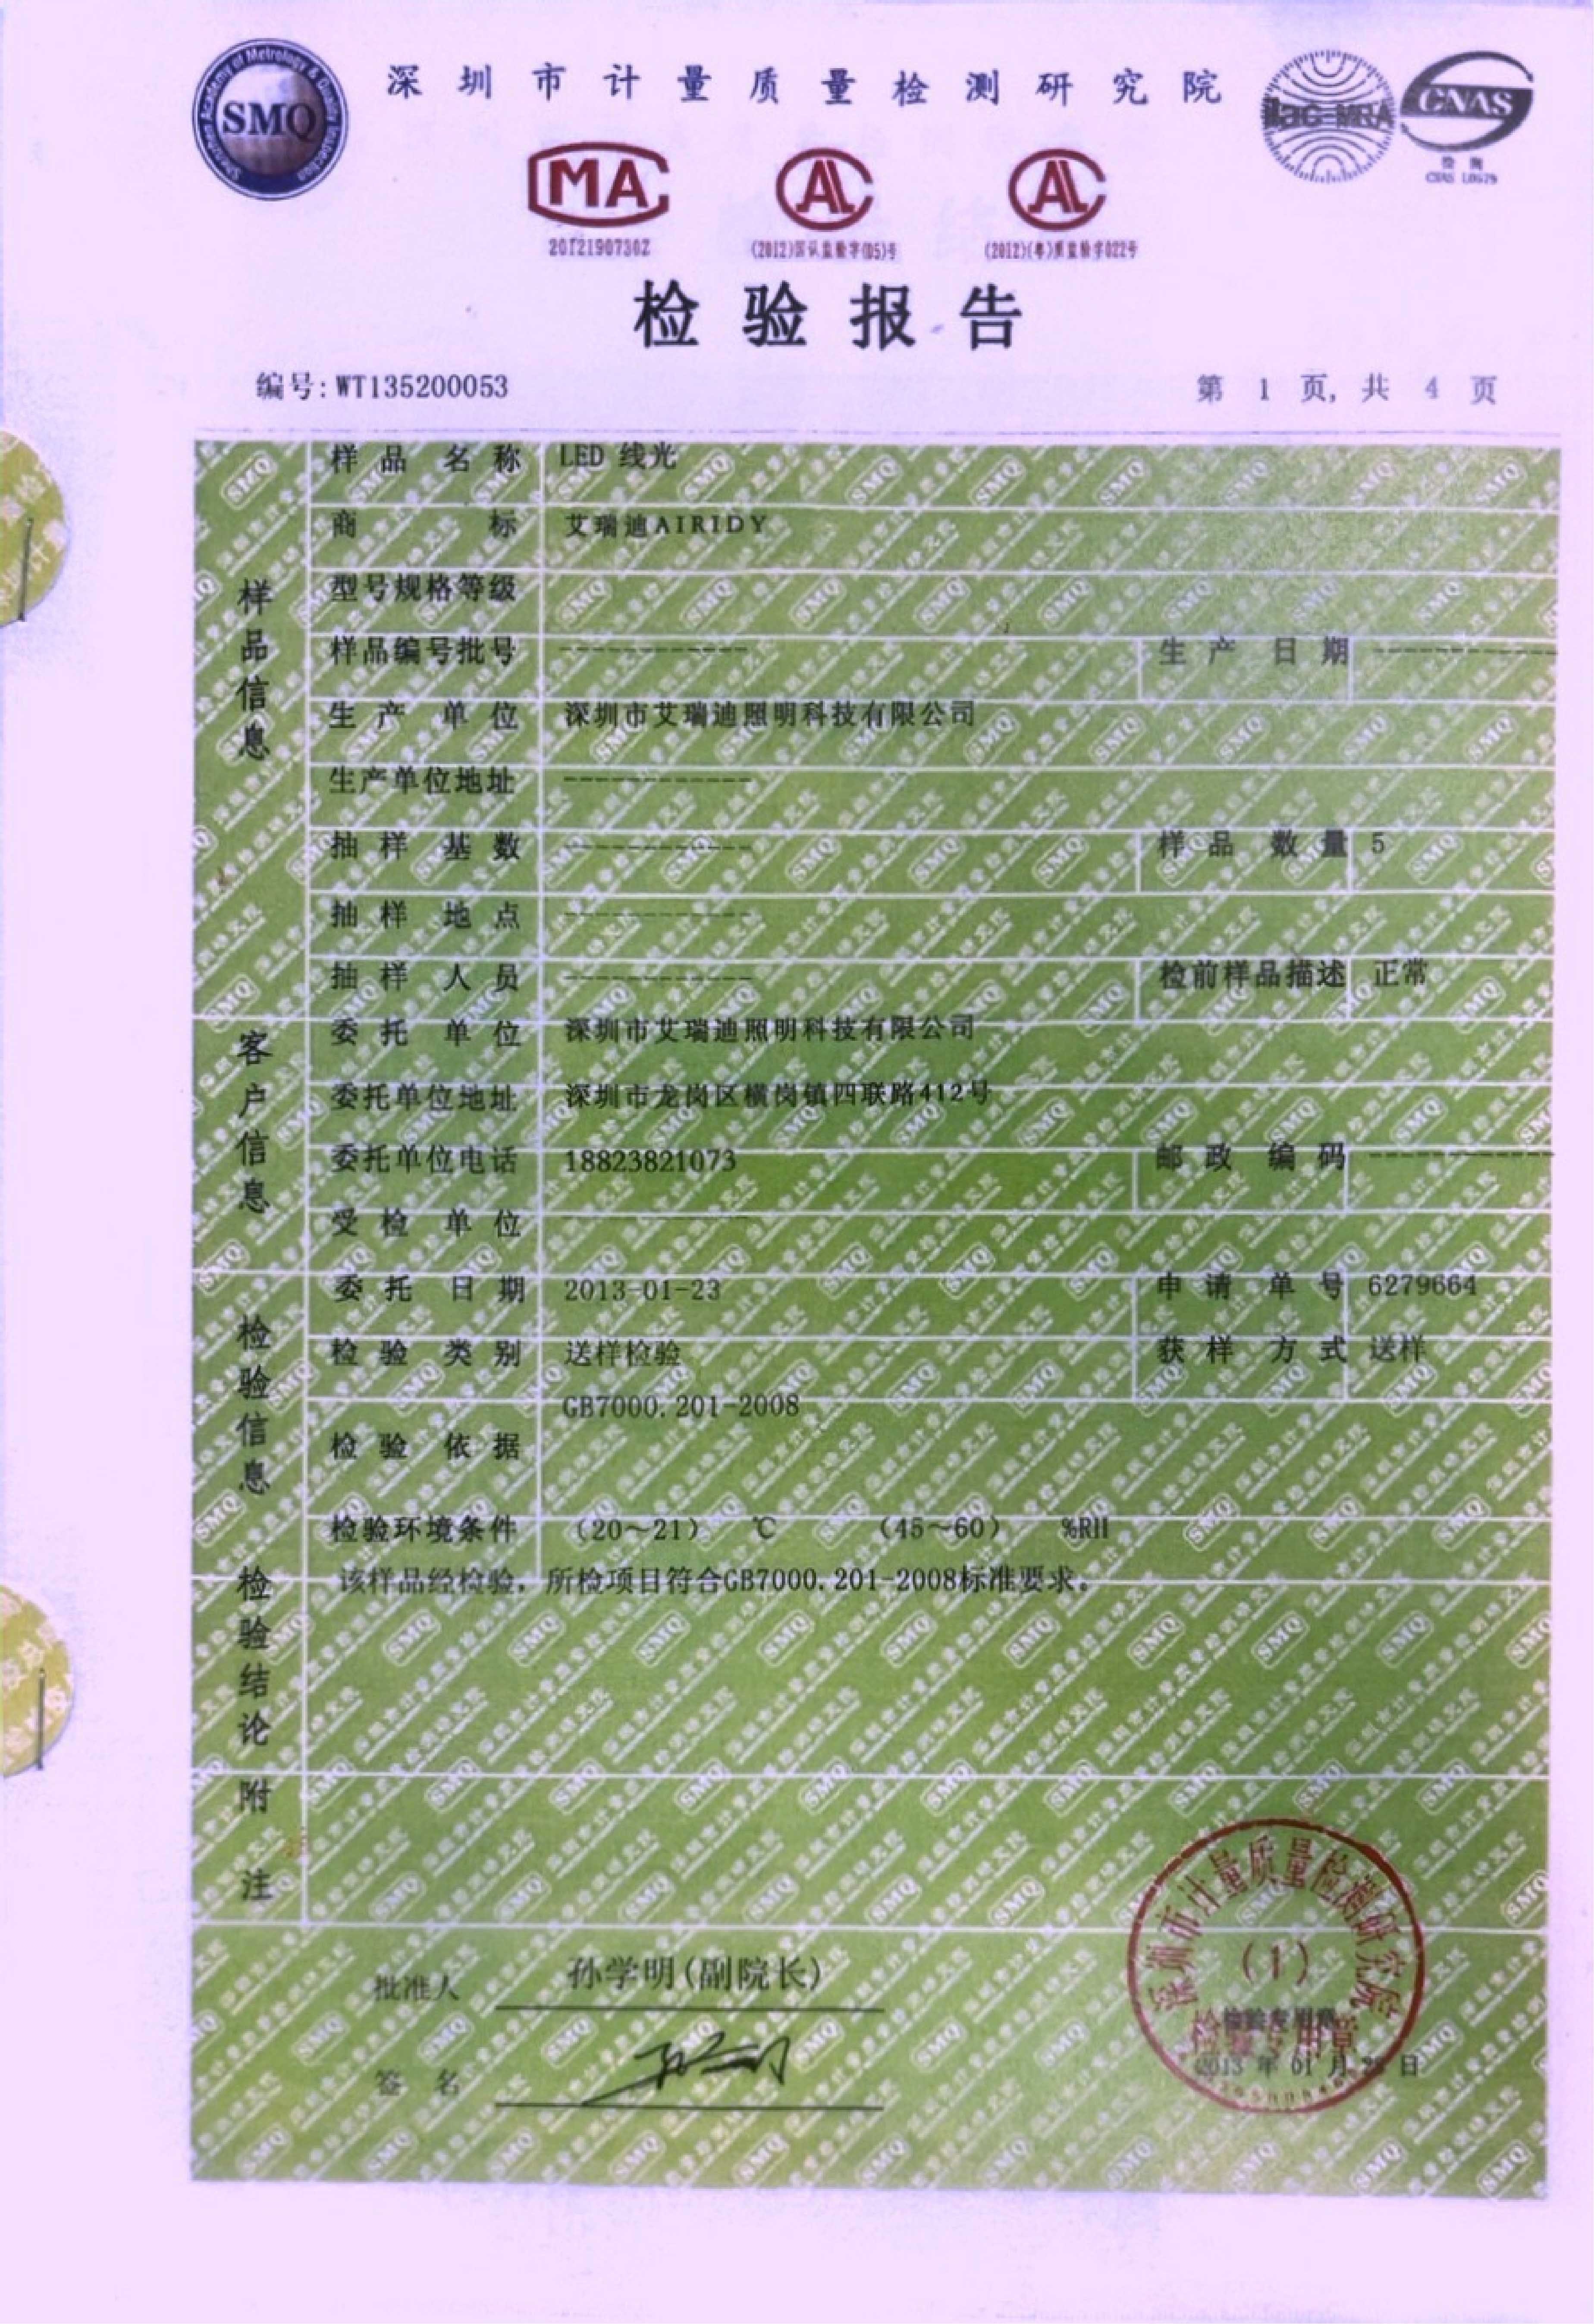 深圳市计量质量检测研究院
SMQ
ilac-MRA
CNAS
检测
MA
AL
AL
2012190730Z
(2012)国认监验字(05)号
(2012)(粤)质监验字022号
检验报告
编号:WT135200053
第 1 页, 共 4 页
样品信息
样品名称 LED 线光
商标 艾瑞迪AIRIDY
型号规格等级
样品编号批号 ------------- 生产日期 -------------
生产单位 深圳市艾瑞迪照明科技有限公司
生产单位地址 -------------
抽样基数 ------------- 样品数量 5
抽样地点 -------------
抽样人员 ------------- 检前样品描述 正常
客户信息
委托单位 深圳市艾瑞迪照明科技有限公司
委托单位地址 深圳市龙岗区横岗镇四联路412号
委托单位电话 18823821073 邮政编码 -------------
受检单位 -------------
检验信息
委托日期 2013-01-23 申请单号 6279664
检验类别 送样检验 获样方式 送样
检验依据 GB7000.201-2008
检验环境条件 (20~21) ℃ (45~60) %RH
检验结论
该样品经检验，所检项目符合GB7000.201-2008标准要求。
附注
批准人 孙学明(副院长)
签名
深圳市计量质量检测研究院
(1)
检验专用章
检验专用章
2013 年 01 月 日